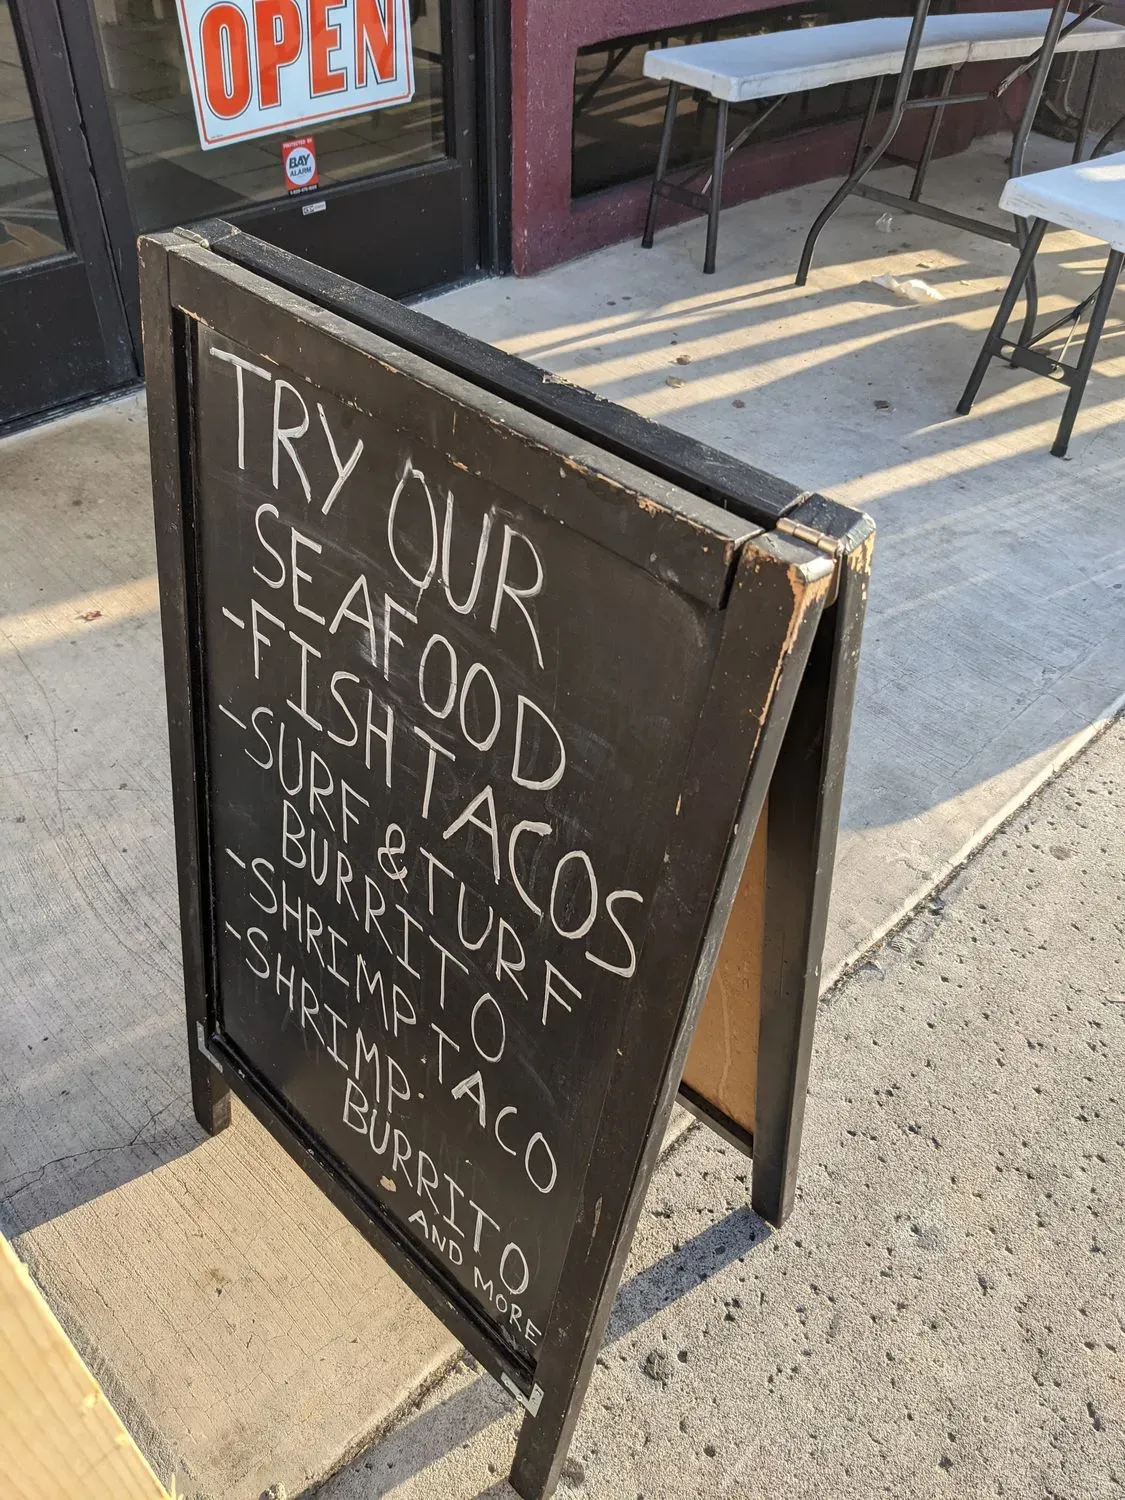 OPEN
PROTECTED BY
BAY
ALARM
TRY OUR
SEAFOOD
-FISH TACOS
-SURF & TURF
BURRITO
-SHRIMP TACO
-SHRIMP
BURRITO
AND MORE